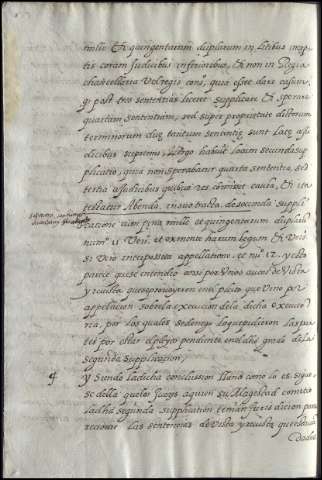 mille et quingentarum duplarum in litibus
coram Judicibus inferioribus, et non in Regia
chancellaria vel regis cons.º, quia esset dare casum
qº post tres sententias liceret supplicare et sperare
quartam sententiam, sed super proprietate dictorum
terminorum duæ tantum sententiæ sunt latæ a Ju
dicibus supremis, ergo habuit locum secunda sup
plicatio, quia non sperabatur quarta sententia, sed
tertia a Judicibus quibus Rex comisit causa, et ita
tractatu de secunda suppli
catione cum pena mille et quingentarum duplarum
num.º 11 Vers. et ex mente harum legum et Vers.
si vero interposita appellatione, et nu.º 12, y esta
parece que se entendio assi por unos autos de Vista
y revista que se proveyeron en el pleito que vino por
appelacion sobre la execucion de la dicha executo
ria, por los quales se denego lo que pidieron las par
tes por estar el pleyto pendiente en el dicho grado de la
segunda supplicacion,
Y siendo la dicha conclussion llana como lo es. sigue
se della que los Jueces a quien su Magestad cometio
la dicha segunda supplication tenian Jurisdicion para
reveer las sentencias de Vista y revista que
dadas